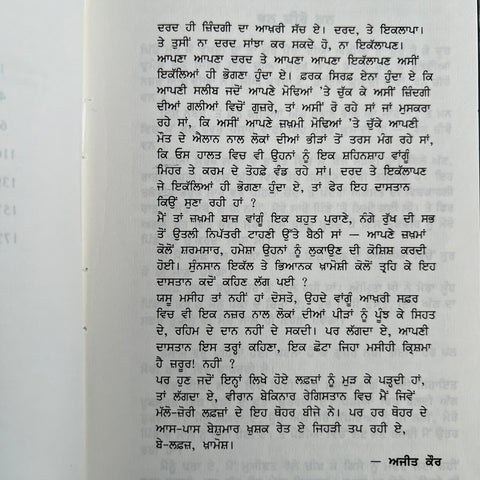 ਦਰਦ ਹੀ ਜ਼ਿੰਦਗੀ ਦਾ ਆਖ਼ਰੀ ਸੱਚ ਏ। ਦਰਦ, ਤੇ ਇਕਲਾਪਾ।
ਤੇ ਤੁਸੀਂ ਨਾ ਦਰਦ ਸਾਂਝਾ ਕਰ ਸਕਦੇ ਹੋ, ਨਾ ਇਕੱਲਾਪਣ।
ਆਪਣਾ ਆਪਣਾ ਦਰਦ ਤੇ ਆਪਣਾ ਆਪਣਾ ਇਕੱਲਾਪਣ ਅਸੀਂ
ਇਕੱਲਿਆਂ ਹੀ ਭੋਗਣਾ ਹੁੰਦਾ ਏ। ਫ਼ਰਕ ਸਿਰਫ਼ ਏਨਾ ਹੁੰਦਾ ਏ ਕਿ
ਆਪਣੀ ਸਲੀਬ ਜਦੋਂ ਆਪਣੇ ਮੋਢਿਆਂ 'ਤੇ ਚੁੱਕ ਕੇ ਅਸੀਂ ਜ਼ਿੰਦਗੀ
ਦੀਆਂ ਗਲੀਆਂ ਵਿਚੋਂ ਗੁਜ਼ਰੇ, ਤਾਂ ਅਸੀਂ ਰੋ ਰਹੇ ਸਾਂ ਜਾਂ ਮੁਸਕਰਾ
ਰਹੇ ਸਾਂ, ਕਿ ਅਸੀਂ ਆਪਣੇ ਜ਼ਖ਼ਮੀ ਮੋਢਿਆਂ 'ਤੇ ਚੁੱਕੀ ਆਪਣੀ
ਮੌਤ ਦੇ ਐਲਾਨ ਨਾਲ ਲੋਕਾਂ ਦੀਆਂ ਭੀੜਾਂ ਤੋਂ ਤਰਸ ਮੰਗ ਰਹੇ ਸਾਂ,
ਕਿ ਓਸ ਹਾਲਤ ਵਿਚ ਵੀ ਉਹਨਾਂ ਨੂੰ ਇਕ ਸ਼ਹਿਨਸ਼ਾਹ ਵਾਂਗੂੰ
ਮਿਹਰ ਤੇ ਕਰਮ ਦੇ ਤੋਹਫ਼ੇ ਵੰਡ ਰਹੇ ਸਾਂ। ਦਰਦ ਤੇ ਇਕੱਲਾਪਣ
ਜੇ ਇਕੱਲਿਆਂ ਹੀ ਭੋਗਣਾ ਹੁੰਦਾ ਏ, ਤਾਂ ਫੇਰ ਇਹ ਦਾਸਤਾਨ
ਕਿਉਂ ਸੁਣਾ ਰਹੀ ਹਾਂ ?
ਮੈਂ ਤਾਂ ਜ਼ਖ਼ਮੀ ਬਾਜ਼ ਵਾਂਗੂੰ ਇਕ ਬਹੁਤ ਪੁਰਾਣੇ, ਨੰਗੇ ਰੁੱਖ ਦੀ ਸਭ
ਤੋਂ ਉਤਲੀ ਨਿਪੱਤਰੀ ਟਾਹਣੀ ਉੱਤੇ ਬੈਠੀ ਸਾਂ — ਆਪਣੇ ਜ਼ਖ਼ਮਾਂ
ਕੋਲੋਂ ਸ਼ਰਮਸਾਰ, ਹਮੇਸ਼ਾ ਉਹਨਾਂ ਨੂੰ ਲੁਕਾਉਣ ਦੀ ਕੋਸ਼ਿਸ਼ ਕਰਦੀ
ਹੋਈ। ਸੁੰਨਸਾਨ ਇਕੱਲ ਤੇ ਭਿਆਨਕ ਖ਼ਾਮੋਸ਼ੀ ਕੋਲੋਂ ਤ੍ਰਹਿ ਕੇ ਇਹ
ਦਾਸਤਾਨ ਕਦੋਂ ਕਹਿਣ ਲੱਗ ਪਈ ?
ਯਸੂ ਮਸੀਹ ਤਾਂ ਨਹੀਂ ਹਾਂ ਦੋਸਤੋ, ਉਹਦੇ ਵਾਂਗੂੰ ਆਖ਼ਰੀ ਸਫ਼ਰ
ਵਿਚ ਵੀ ਇਕ ਨਜ਼ਰ ਨਾਲ ਲੋਕਾਂ ਦੀਆਂ ਪੀੜਾਂ ਨੂੰ ਪੂੰਝ ਕੇ ਸਿਹਤ
ਦੇ, ਰਹਿਮ ਦੇ ਦਾਨ ਨਹੀਂ ਦੇ ਸਕਦੀ। ਪਰ ਲੱਗਦਾ ਏ, ਆਪਣੀ
ਦਾਸਤਾਨ ਇਸ ਤਰ੍ਹਾਂ ਕਹਿਣਾ, ਇਕ ਛੋਟਾ ਜਿਹਾ ਮਸੀਹੀ ਕ੍ਰਿਸ਼ਮਾ
ਹੈ ਜ਼ਰੂਰ! ਨਹੀਂ ?
ਪਰ ਹੁਣ ਜਦੋਂ ਇਨ੍ਹਾਂ ਲਿਖੇ ਹੋਏ ਲਫ਼ਜ਼ਾਂ ਨੂੰ ਮੁੜ ਕੇ ਪੜ੍ਹਦੀ ਹਾਂ,
ਤਾਂ ਲੱਗਦਾ ਏ, ਵੀਰਾਨ ਬੇਕਿਨਾਰ ਰੇਗਿਸਤਾਨ ਵਿਚ ਮੈਂ ਜਿਵੇਂ
ਮੱਲੋ-ਜ਼ੋਰੀ ਲਫ਼ਜ਼ਾਂ ਦੇ ਇਹ ਥੋਹਰ ਬੀਜੇ ਨੇ। ਪਰ ਹਰ ਥੋਹਰ ਦੇ
ਆਸ-ਪਾਸ ਬੇਸ਼ੁਮਾਰ ਖ਼ੁਸ਼ਕ ਰੇਤ ਏ ਜਿਹੜੀ ਤਪ ਰਹੀ ਏ,
ਬੇ-ਲਫ਼ਜ਼, ਖ਼ਾਮੋਸ਼।
— ਅਜੀਤ ਕੌਰ